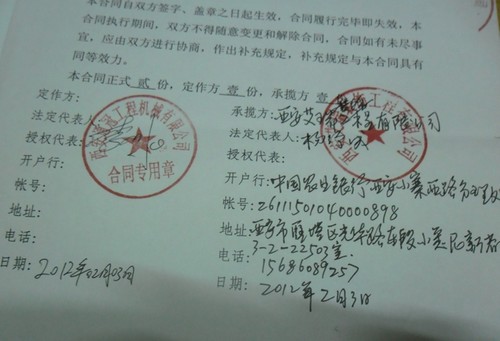 本合同自双方签字、盖章之日起生效,合同履行完毕即失效,本
合同执行期间,双方不得随意变更和解除合同,合同如有未尽事
宜,应由双方进行协商,作出补充规定,补充规定与本合同具有
同等效力。
本合同正式 贰 份,定作方 壹 份,承揽方 壹 份。
定作方:
法定代表
授权代表:
开户行:
帐号:
地址:
电话:
日期: 2012年02月03日
工程机械有限公司
合同专用章
承揽方: 西安 有限公司
法定代表人:
授权代表:
开户行: 中国农业银行西安小寨西路分理处
帐号: 26111501040000898
地址: 西安市雁塔区 小区
3-2-22503室
电话: 15686089257
日期: 2012年2月3日
工程有限公司